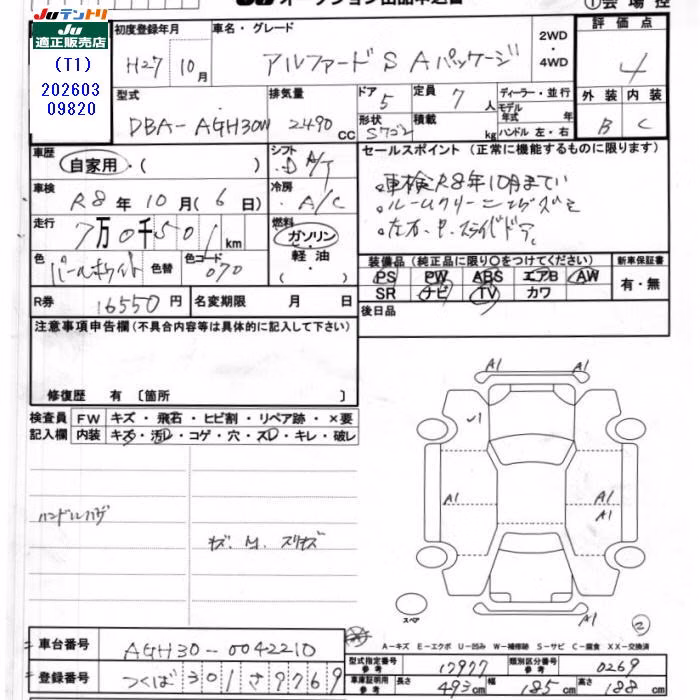 Juテントリ
Ju
適正販売店
(T1)
202603
09820
初度登録年月 車名・グレード 2WD ・ 4WD 評価点
H27 10月 アルファード S Aパッケージ 4
型式 排気量 ドア 5 定員 7人 ディーラー・並行 外装 内装
DBA-AGH30W 2490 CC 形状 積載 kg モデル年式 年 ハンドル 左・右 B C
車歴 自家用・( ) シフト D A/T セールスポイント (正常に機能するものに限ります)
車検 R8年10月(6日) 冷房 A/C
・車検R8年10月まで
・ルームクリーニングズミ
走行 7万0千501km 燃料 ガソリン・軽油・( )
・左右・P.スライドドア
色 パールホワイト 色替 色コード 070
装備品 (純正品に限り〇をつけてください) 新車保証書
PS PW ABS エアB AW 有・無
SR ナビ TV カワ
R券 16550円 名変期限 月 日
後日品
注意事項申告欄(不具合内容等は具体的に記入して下さい)
修復歴 有 〔箇所 〕
検査員 FW キズ・飛石・ヒビ割・リペア跡・×要
記入欄 内装 キズ・汚レ・コゲ・穴・スレ・キレ・破レ
A1 A1
A1 A1
A1
A1 A1
スペア
2
A-キズ E-エクボ U-凹み W-補修跡 S-サビ C-腐食 XX-交換済
車台番号 AGH30-0042210
型式指定番号 参考 17977 類別区分番号 参考 0269
登録番号 つくば301さ9769
車庫証明用 参考 長さ 493cm 幅 185cm 高さ 188cm